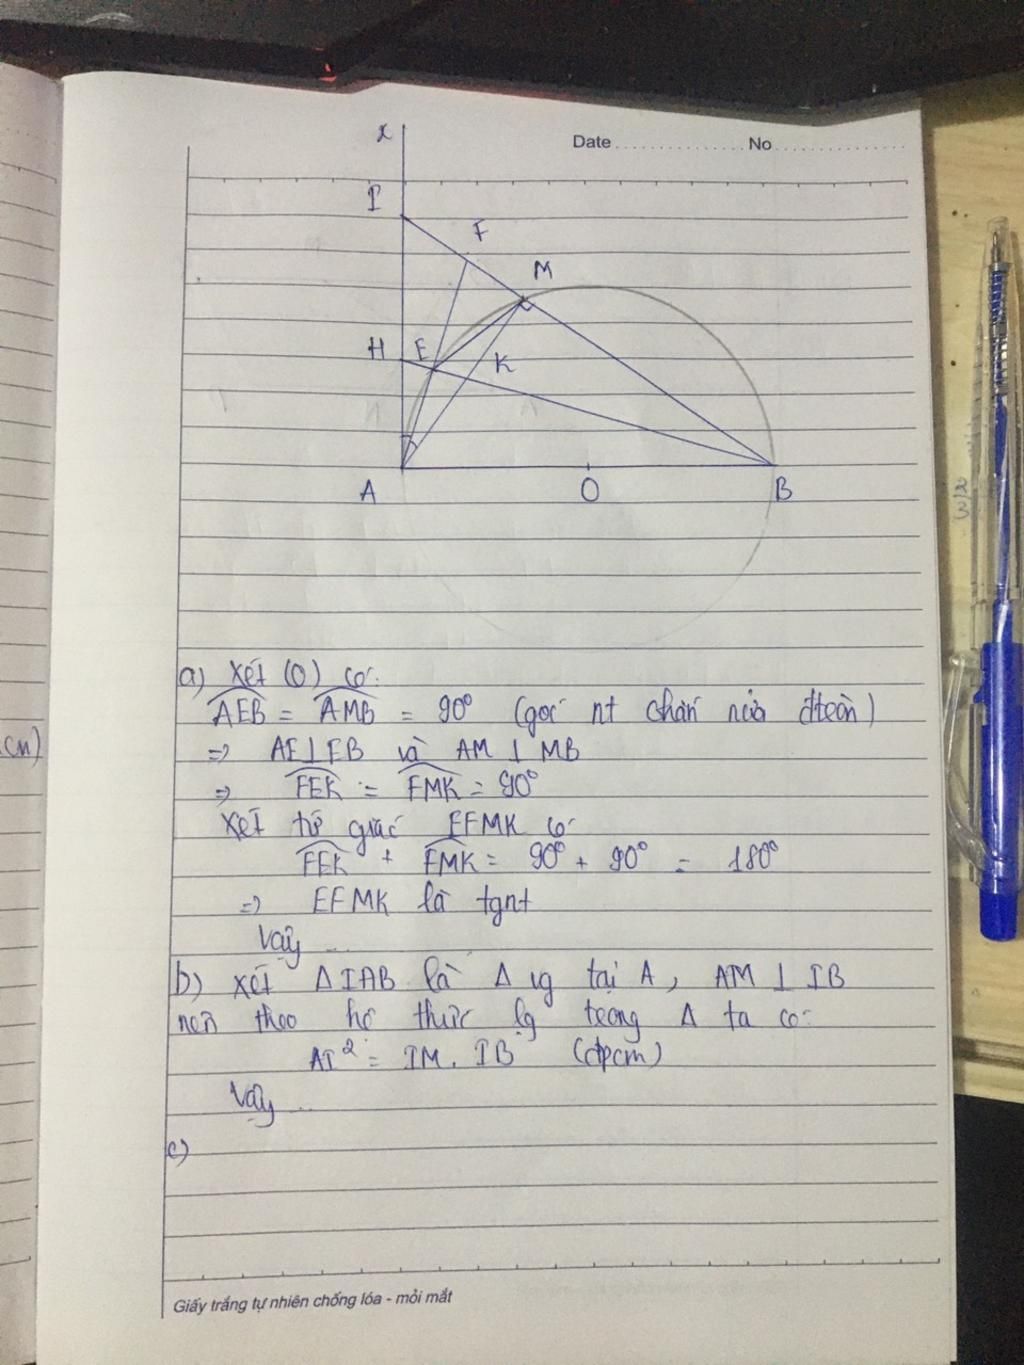 x
Date No
I
F
M
H E K
A O B
a) Xét (O) có:
AEB = AMB = 90° (góc nt chắn nửa đtròn)
=> AE ⊥ EB và AM ⊥ MB
=> FEK = FMK = 90°
Xét tứ giác EFMK có:
FEK + FMK = 90° + 90° = 180°
=> EFMK là tgnt
Vậy ...
b) Xét Δ IAB là Δ vg tại A, AM ⊥ IB
nên theo hệ thức lg trong Δ ta có:
AI² = IM. IB (đpcm)
Vậy ...
c)
Giấy trắng tự nhiên chống lóa - mỏi mắt
cm)